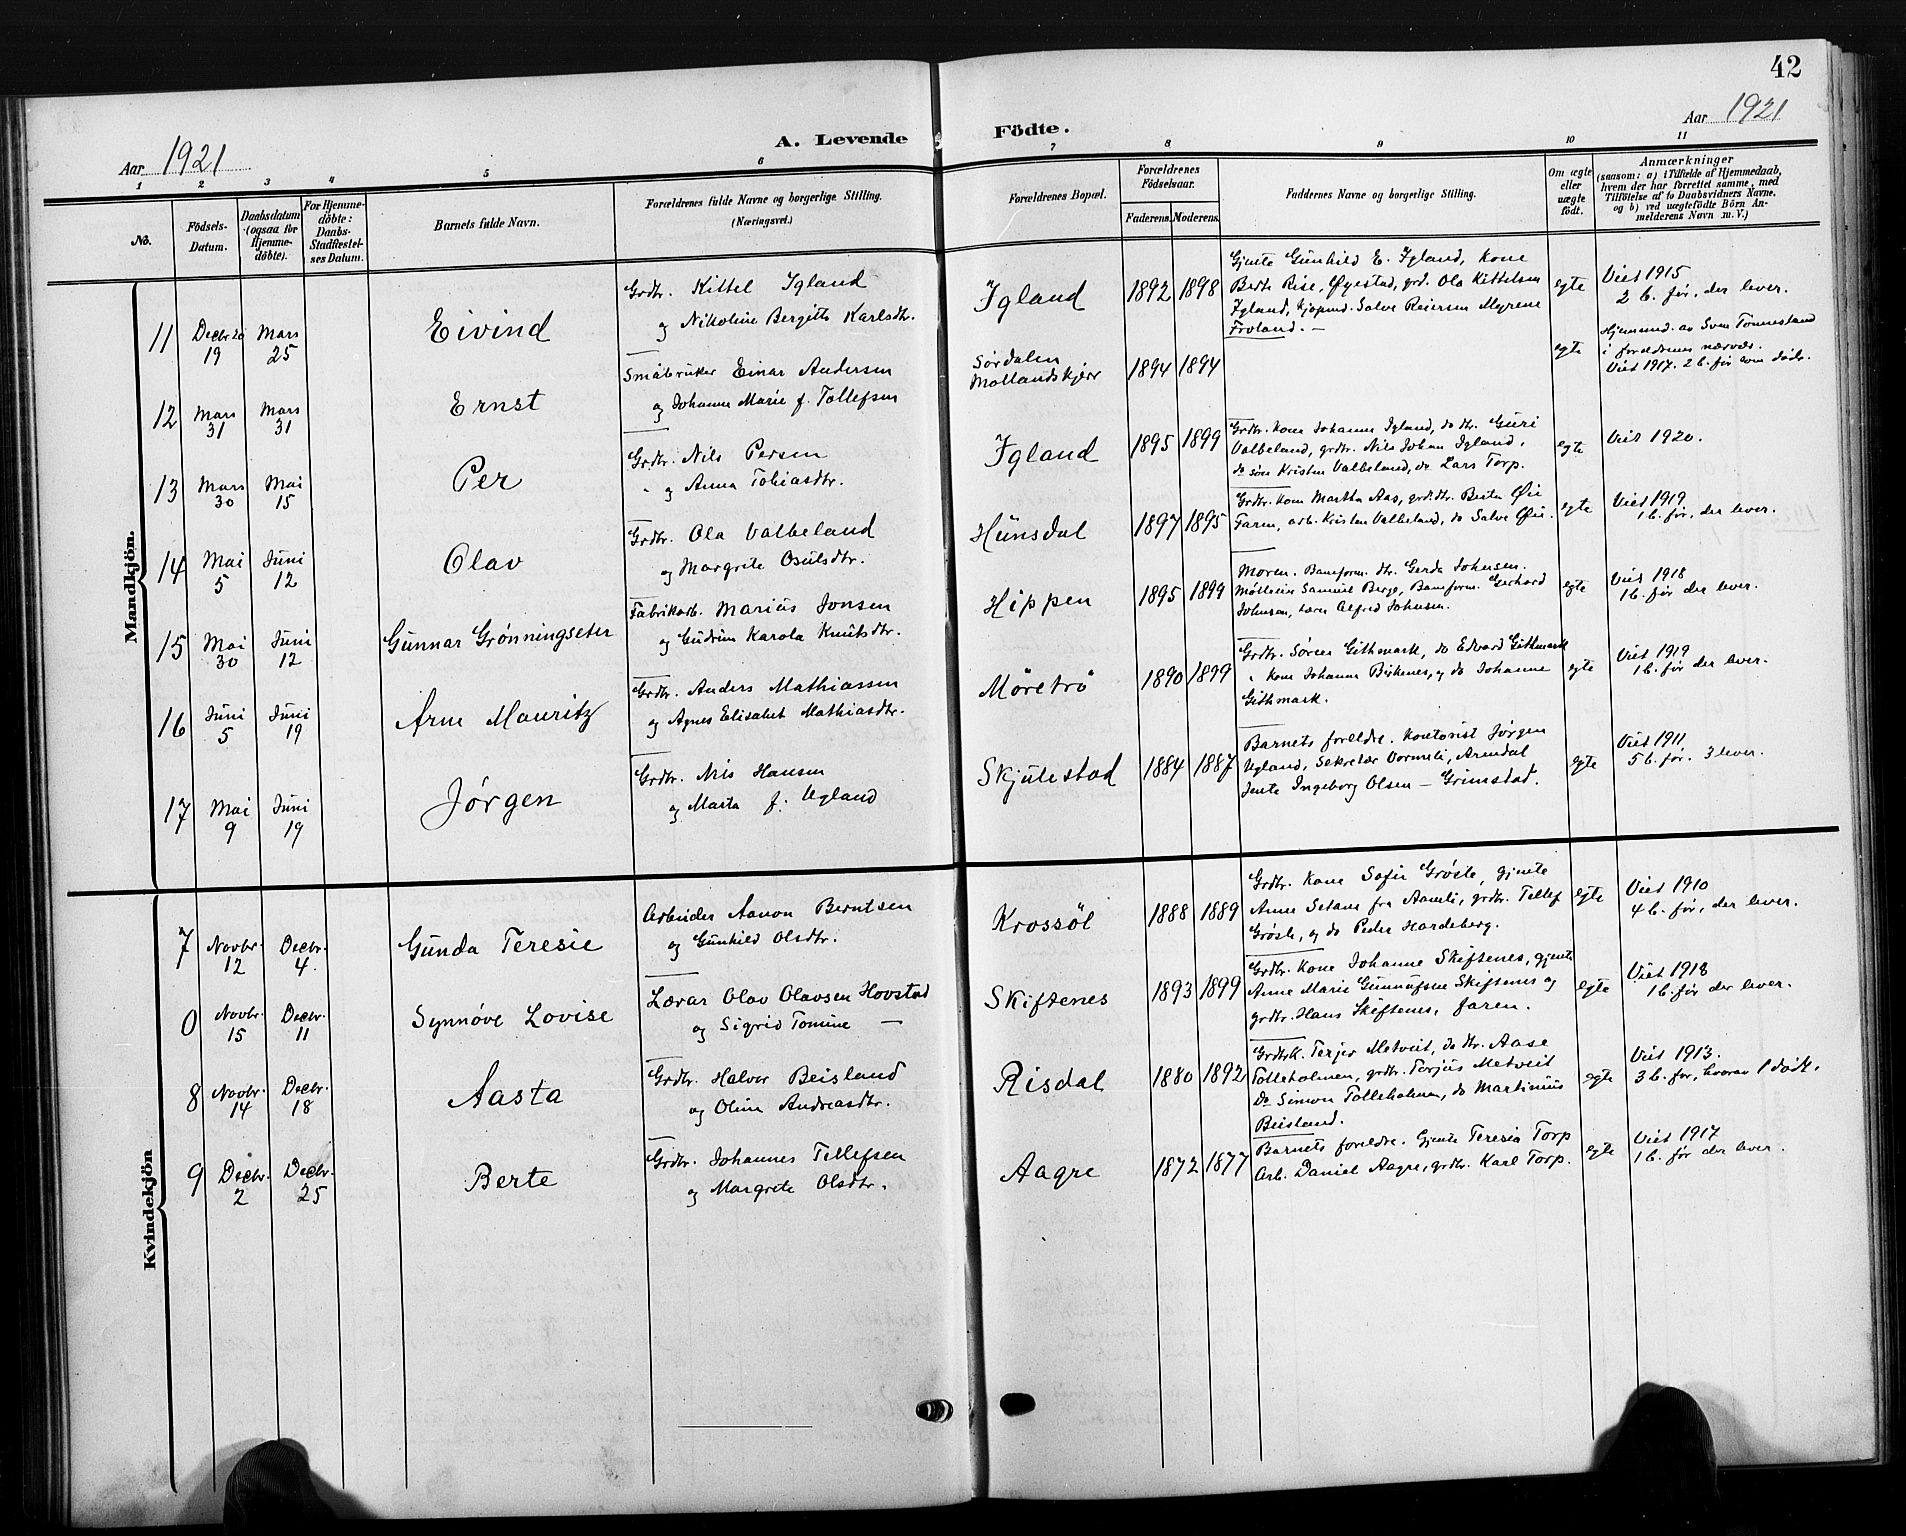 42
Aar 1921
A. Levende
Födte.
Aar 1921
1 2 3 4 5 6 7 8 9 10 11
No.
Födsels-
Datum.
Daabsdatum
(ogsaa for
Hjemme-
döbte).
For Hjemme-
döbte:
Daabs-
Stadfæstel-
ses Datum.
Barnets fulde Navn.
Forældrenes fulde Navne og borgerlige Stilling.
(Næringsvei.)
Forældrenes Bopæl.
Forældrenes
Födselsaar.
Faderens. Moderens.
Faddernes Navne og borgerlige Stilling.
Om ægte
eller
uægte
födt.
Anmærkninger
(saasom: a) i Tilfælde af Hjemmedaab,
hvem der har forrettet samme, med
Tilföielse af to Daabsvidners Navne,
og b) ved uægtefödte Börn An-
melderens Navn m. V.)
Mandkjön.
11
Decbr 20
19
Mars
25
Eivind
Grdbr. Kittel Igland
og Nikoline Bergitte Karlsdtr.
Igland
1892 1898
Gjente Gunhild E. Igland, kone
Berte Rise, Øyestad, grd. Ola Kittelsen
Igland, kjøpmd. Salve Reiersen Myrene
Froland. —
egte
Viet 1915
2 b. før, der lever.
12
Mars
31
Mars
31
Ernst
Småbruker Einar Andersen
og Johanne Marie f. Tollefsen
Sørdalen
Mollandskjerr
1894 1894
egte
Hjemmd. av Sven Tønnesland
i foreldrenes nærvær.
Viet 1917. 2 b. før som døde.
13
Mars
30
Mai
15
Per
Grdbr. Nils Persen
" og Anna Tobiasdtr.
Igland
1895 1899
Grdbr. kone Johanne Igland, do dtr. Guri
Valbeland, grdbr. Nils Johan Igland,
do søn Kristen Valbeland, do Lars Torp.
egte
Viet 1920.
14
Mai
5
Juni
12
Olav
Grdbr. Ola Valbeland
og Margrete Osulsdtr.
Hunsdal
1897 1895
Grdbr. kone Martha Aas, grd.dtr. Berta Øie
Faren, arb. Kristen Valbeland, do Salve Øie.
egte
Viet 1919
1 b. før, der lever.
15
Mai
30
Juni
12
Gunnar Grønningseter
Fabrikarb. Marius Jonsen
og Gudrun Karola Knutsdtr.
Hippen
1895 1899
Moren. Baneform. dtr. Gerda Johnsen.
Mølleren Samuel Berge, Baneform. Gerhard
Johnsen, Alfred Johnsen.
egte
Viet 1918
1 b. før der lever.
16
Juni
5
Juni
19
Arne Mauritz
Grdbr. Anders Mathiassen
og Agnes Elisabet Mathiasdtr.
Møretrø
1890 1899
Grdbr. Søren Githmark, do Edvard Githmark
" kone Johanne Birkenes, og do Johanne
Githmark.
egte
Viet 1919
1 b. før der lever.
17
Mai
9
Juni
19
Jørgen
Grdbr. Nils Hansen
og Marta f. Ugland
Skjulestad
1884 1887
Barnets foreldre. Kontorist Jørgen
Ugland, Sekretær Vormeli, Arendal
Jente Ingeborg Olsen — Grimstad.
egte
Viet 1911
5 b. før. 3 lever.
Kvindekjön
7
Novbr.
12
Decbr.
4.
Gunda Teresie
Arbeider Aanon Berntsen
og Gunhild Olsdtr.
Krossøl
1888 1889
Grdbr. kone Sofie Grøsle, gjente
Anne Setane fra Aamli, grdbr. Tellef
Grøsle, og do Peder Hardeberg.
egte
Viet 1910
4 b. før, der lever.
0
Novbr.
15
Decbr.
11
Synnøve Lovise
Lærar Olav Olavsen Hovstad
og Sigrid Tomine —
Skiftenes
1893 1899
Grdbr. kone Johanne Skiftenes, gjente
Anne Marie Gunnufsen Skiftenes og
grdbr. Hans Skiftenes, faren.
egte
Viet 1918
1 b. før der lever.
8
Novbr.
14
Decbr.
18
Aasta
Grdbr. Halvor Beisland
og Oline Andreasdtr.
Risdal
1880 1892
Grdbrk. Terjer Metveit, do dtr. Aase
Tolleholmen, grdbr. Torjus Metveit
Do Simon Tolleholmen, do Martinius
Beisland.
egte
Viet 1913.
3 b. før, hvorav 1 død.
9
Decbr.
2
Decbr.
25
Berte
Grdbr. Johannes Tellefsen
og Margrete Olsdtr.
Aagre
1872 1877
Barnets foreldre. Gjente Teresia Torp
Arb. Daniel Aagre, grdbr. Karl Torp.
egte
Viet 1917
1 b. før der lever.